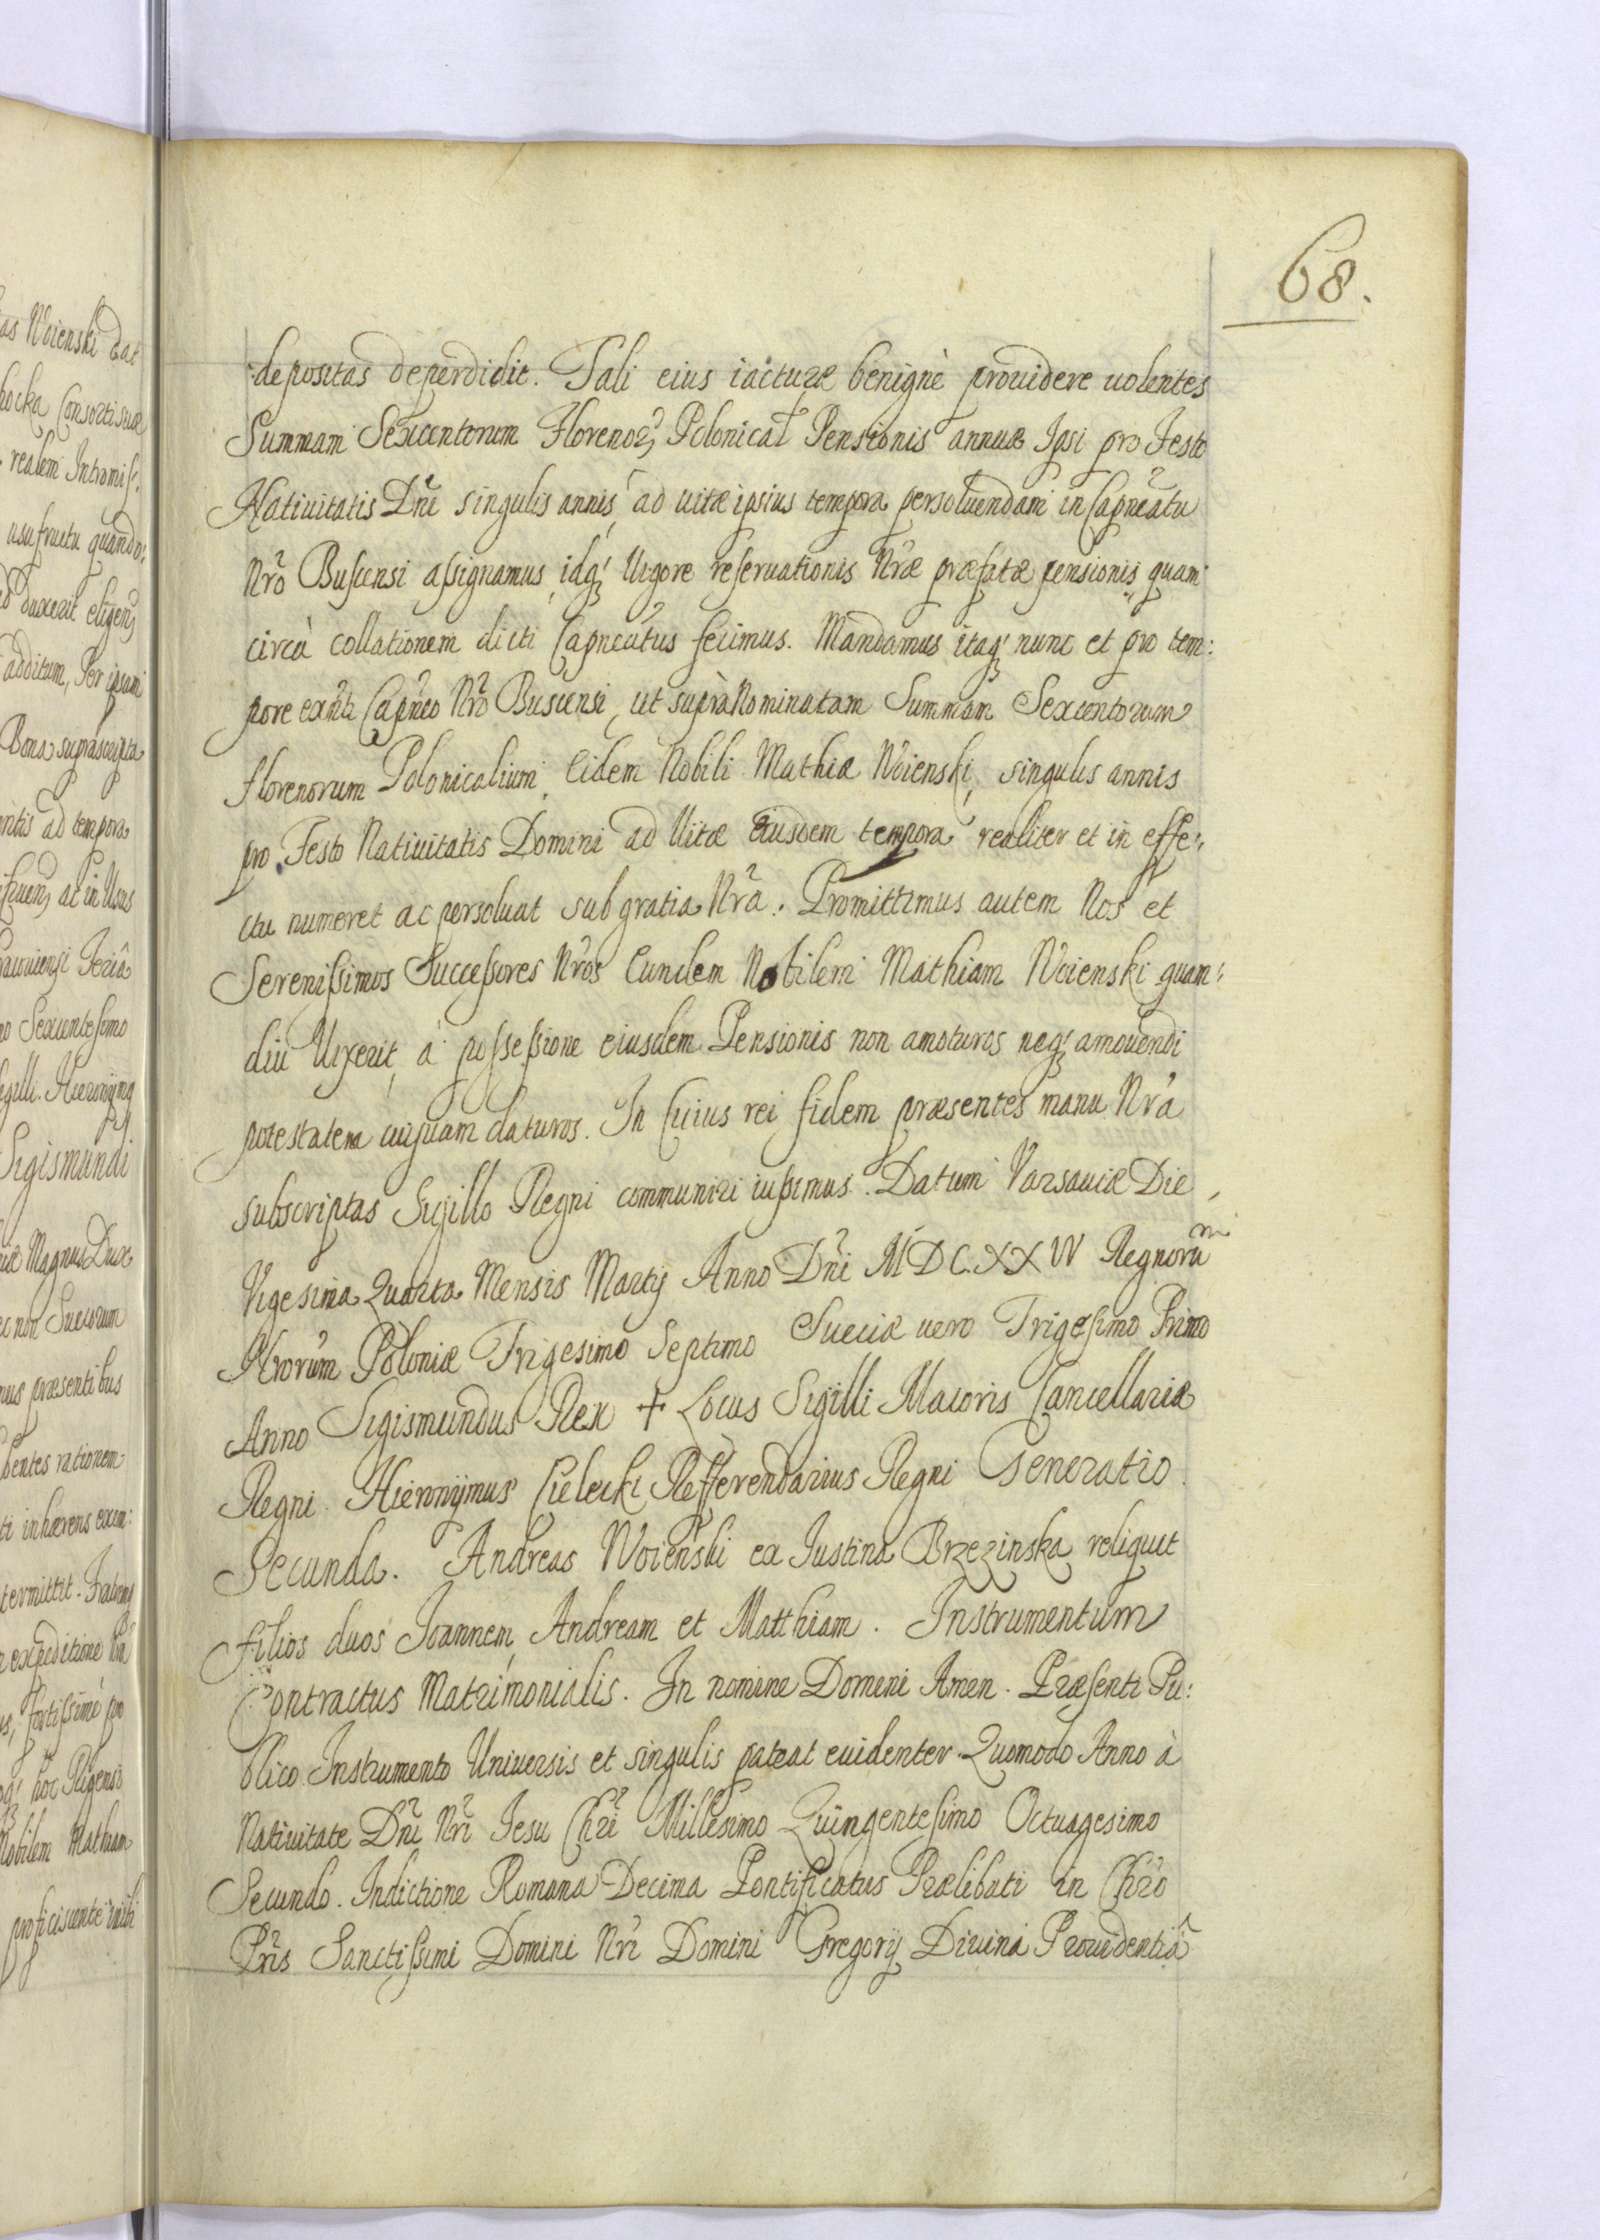 68.
depositas deperdidit. Tali eius iacturæ benignè prouidere uolentes
Summam Sexcentorum Florenoȝ Polonical Pensionis annuæ Ipsi pro Festo
Natiuitatis Dn̄i singulis annis, ad uitæ ipsius tempora persoluendam in Capn̄eatu
Nr̄o Buscensi aſsignamus, idqȝ Uigore reſeruationis Nr̄æ præfatæ pensionis quam
circà collationem dicti Capn̄eatus fecimus. Mandamus itaqȝ nunc et pro tem:
pore exn̄ti Capn̄eo Nr̄o Buscensi, ut suprà Nominatam Summam Sexcentorum
florenorum Polonicalium, Eidem Nobili Mathiæ Woienski, singulis annis
pro Festo Natiuitatis Domini ad Uitæ Eiusdem tempora realiter et in effe:
ctu numeret ac persoluat sub gratia Nr̄a. Promittimus autem Nos et
Sereniſsimos Succeſsores Nr̄os Eundem Nobilem Mathiam Woienski quam:
diu Uixerit, à poſseſsione eiusdem Pensionis non amoturos neqȝ amouendi
potestatem cuiquam daturos. In Cuius rei fidem præsentes manu Nr̄a
subscriptas Sigillo Regni communiri iuſsimus. Datum Varsauiæ Die
Vigesima Quarta Mensis Martij Anno Dn̄i MDCXXIV Regnorūm
Nr̄orum Poloniæ Trigesimo Septimo Sueciæ uero Trigeſimo Primo
Anno Sigismundus Rex + Locus Sigilli Maioris Cancellariæ
Regni. Hieronijmus Cielecki Refferendarius Regni Generatio
Secunda. Andreas Woienski ex Iustina Brzezinska reliquit
filios duos Ioannem, Andream et Matthiam. Instrumentum
Contractus Matrimonialis. In nomine Domini Amen. Præſenti Pu:
blico Instrumento Uniuersis et singulis pateat euidenter Quomodo Anno à
Natiuitate Dn̄i Nr̄i Iesu Chr̄i Millesimo Quingenteſimo Octuagesimo
Secundo. Indictione Romana Decima Pontificatus Prælibati in Chr̄o
Pr̄is Sanctiſsimi Domini Nr̄i Domini Gregorij Diuina Prouidentiâ